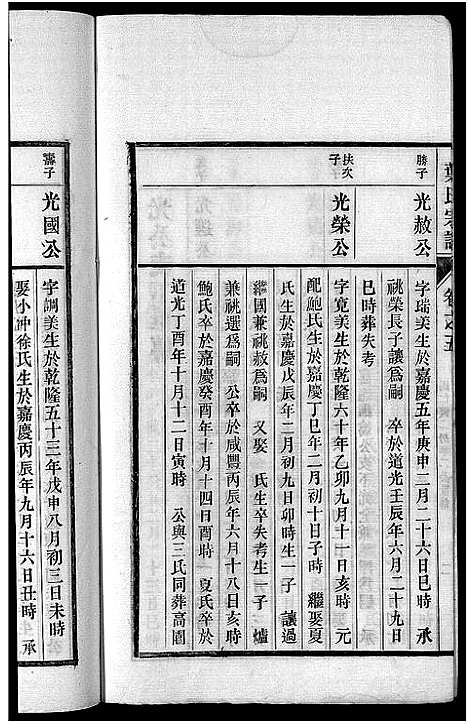 葉氏宗譜
卷之五
勝子
光赦公
字瑞美生於嘉慶五年庚申二月二十六日巳時　承
祧榮長子讓爲嗣　卒於道光壬辰年六月二十九日
巳時葬失考
扶次子
光榮公
字寛美生於乾隆六十年乙卯九月十一日亥時　元
配鮑氏生於嘉慶丁巳年二月初十日子時　繼娶夏
氏生於嘉慶戊辰年二月初九日卯時生一子　讓過
繼國兼祧赦爲嗣　又娶　氏生卒失考生一子　爐
兼祧選爲嗣　公卒於咸豐丙辰年六月十八日亥時
鮑氏卒於嘉慶癸酉年十月十四日酉時　夏氏卒於
道光丁酉年十月十二日寅時　公與三氏同葬高園
壽子
光國公
字調美生於乾隆五十三年戊申八月初三日未時
娶小冲徐氏生於嘉慶丙辰年九月十六日丑時　承